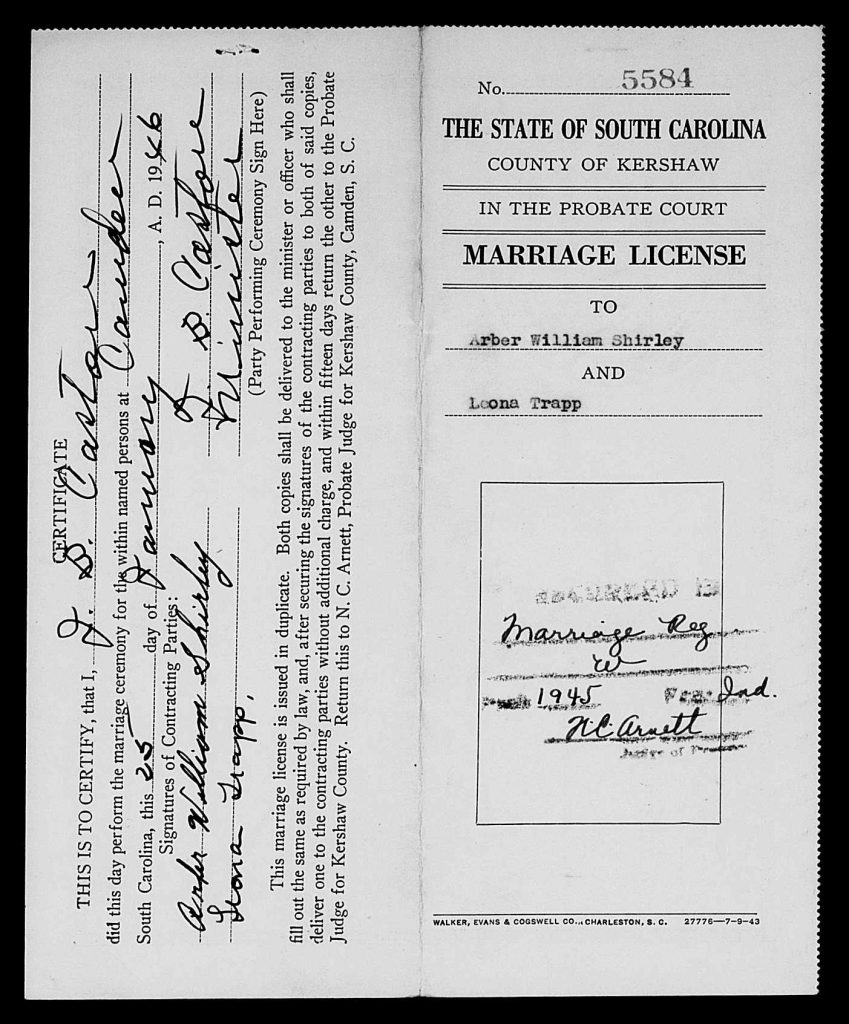 CERTIFICATE
THIS IS TO CERTIFY, that I, J. B. Caston
did this day perform the marriage ceremony for the within named persons at Camden
South Carolina, this 25 day of January, A. D. 1946
Signatures of Contracting Parties:
Arber William Shirley J B Caston
Leona Trapp. Minister
(Party Performing Ceremony Sign Here)
This marriage license is issued in duplicate. Both copies shall be delivered to the minister or officer who shall
fill out the same as required by law, and, after securing the signatures of the contracting parties to both of said copies,
deliver one to the contracting parties without additional charge, and within fifteen days return the other to the Probate
Judge for Kershaw County. Return this to N. C. Arnett, Probate Judge for Kershaw County, Camden, S. C.
No. 5584
THE STATE OF SOUTH CAROLINA
COUNTY OF KERSHAW
IN THE PROBATE COURT
MARRIAGE LICENSE
TO
Arber William Shirley
AND
Leona Trapp
Marriage Reg
W
1945 Ind.
N.C. Arnett
Judge of
WALKER, EVANS & COGSWELL CO., CHARLESTON, S. C. 27776—7-9-43